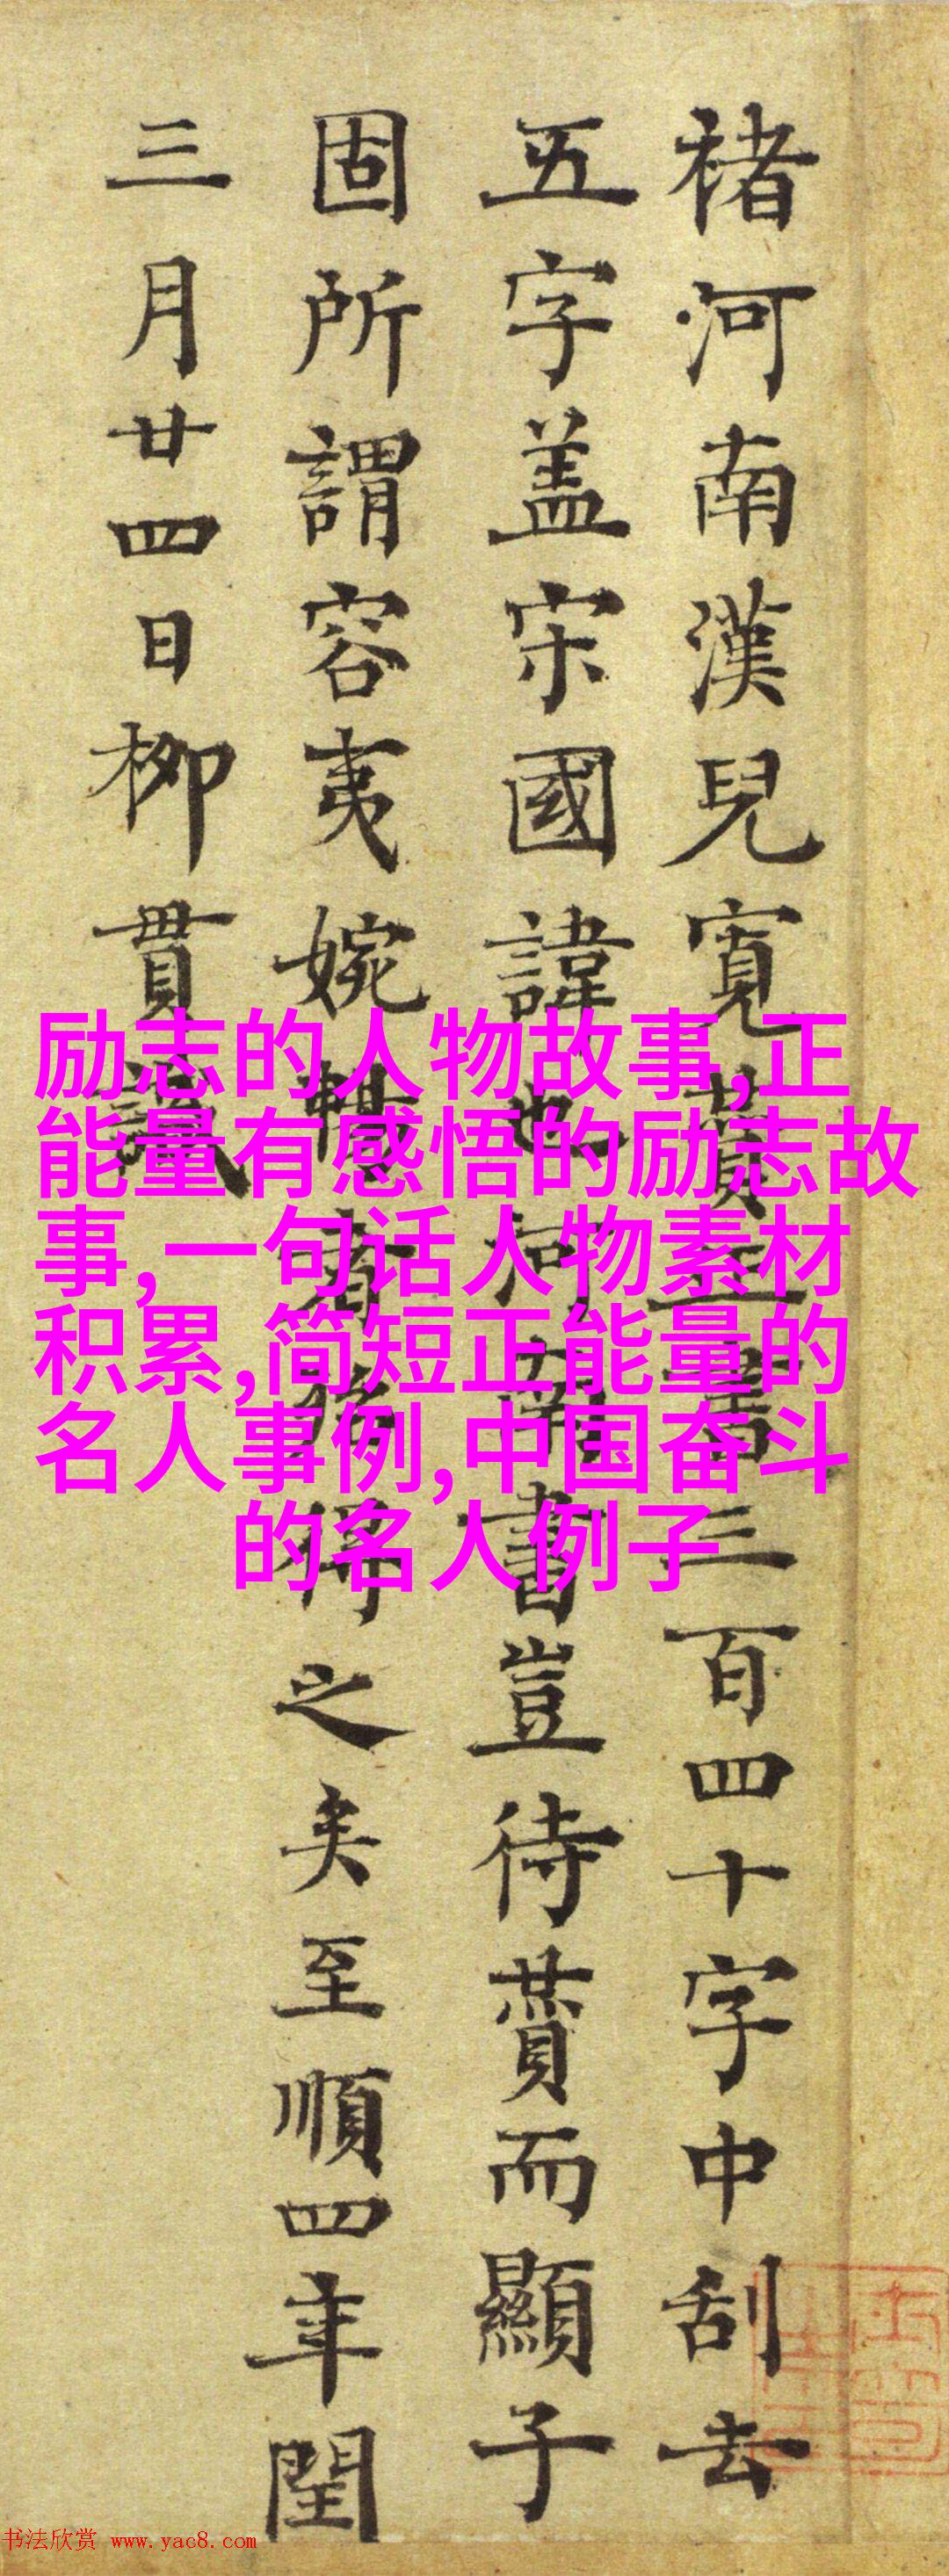 褚河南漢兒寬賛真書三百四十字中刮去
五字盖宋國諱也河南書豈待賛而顯子
固所謂容夷婉暢者得之矣至順四年閏
三月廿四日柳貫識
励志的人物故事,正
能量有感悟的励志故
事,一句话人物素材
积累,简短正能量的
名人事例,中国奋斗
的名人例子
书法欣赏 www.yac8.com